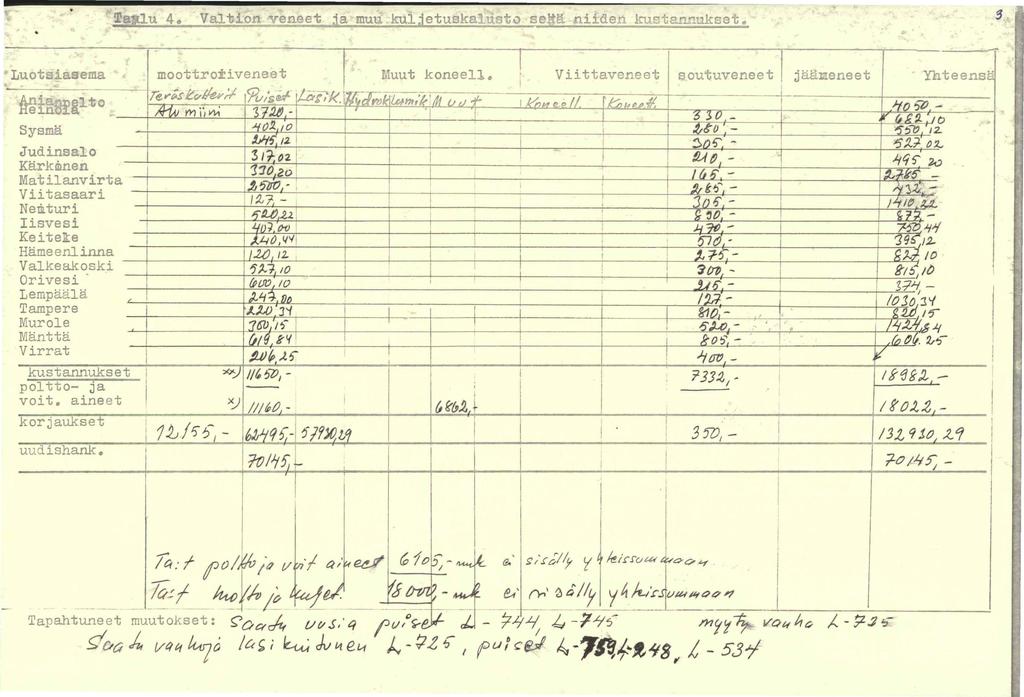 Taulu 4. Valtion veneet ja muu kuljetuskalusto sekä niiden kustannukset. 3
Luotsiasema moottroiiveneet Muut koneell. Viittaveneet soutuveneet jäämeneet Yhteensä
Teräskutterit Puiset Lasik. Hydroklormik Muut Koneell. Koneett.
Anianpelto Alumiini 3720,- 330,- 4050,-
Heinola 402,10 280,- 682,10
Sysmä 245,12 305,- 550,12
Judinsalo 317,02 210,- 527,02
Kärkönen 330,20 165,- 495,20
Matilanvirta 2500,- 285,- 2785,-
Viitasaari 127,- 305,- 432,-
Neituri 520,22 890,- 1410,22
Iisvesi 407,00 470,- 877,-
Keitele 240,44 510,- 750,44
Hämeenlinna 120,12 275,- 395,12
Valkeakoski 527,10 300,- 827,10
Orivesi 600,10 215,- 815,10
Lempäälä 247,00 127,- 374,-
Tampere 220,34 810,- 1030,34
Murole 300,15 520,- 820,15
Mänttä 619,84 805,- 1424,84
Virrat 206,25 400,- 606,25
kustannukset xx) 11650,- 7332,- 18982,-
poltto- ja
voit. aineet x) 11160,- 6862,- 18022,-
korjaukset 12155,- 62495,- 57930,29 350,- 132930,29
uudishank. 70145,- 70145,-
Ta:t poltto ja voit aineet 6105,- mk ei sisälly yhteissummaan
Ta:t huolto ja kuljet. 18000,- mk ei sisälly yhteissummaan
Tapahtuneet muutokset: Saatu uusia puiset L - 744, L-745 myyty vanha L-725
Saatu vanhoja lasikuitunen L-725, puiset L-759, L-248, L-534